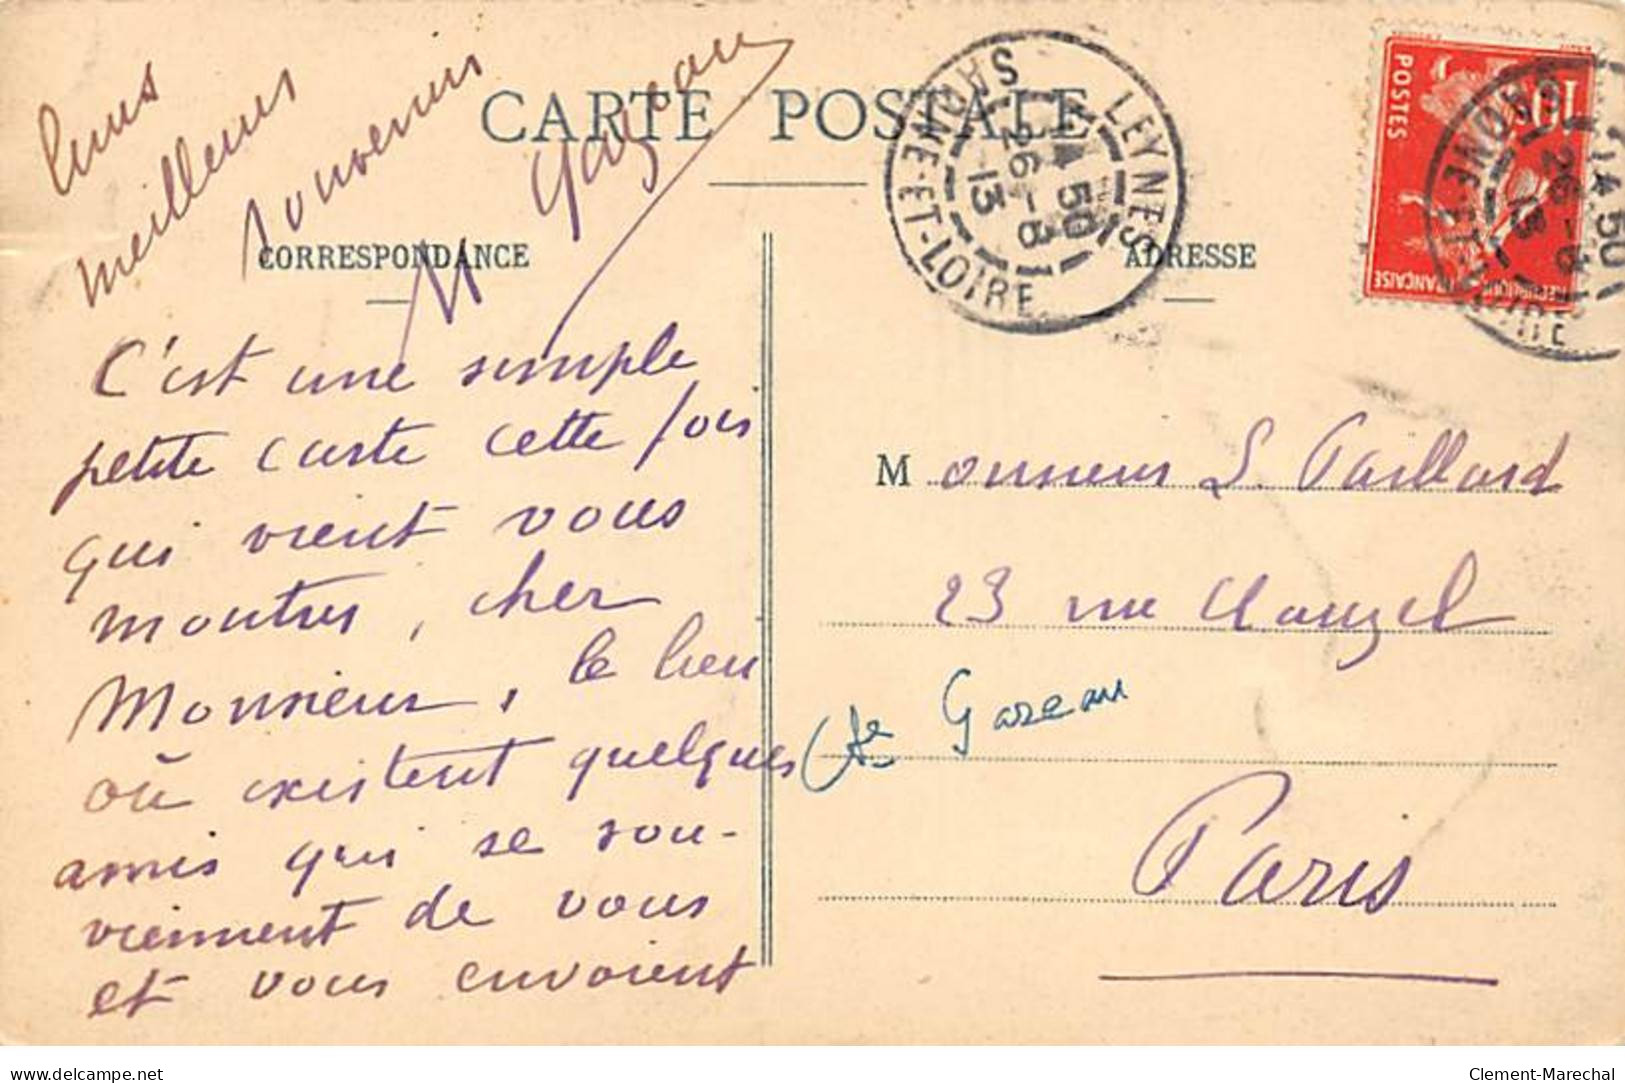 CARTE POSTALE
CORRESPONDANCE
ADRESSE
C'est une simple
petite carte cette fois
qui vient vous
montrer, cher
Monsieur, le lieu
où existent quelques
amis qui se sou-
viennent de vous
et vous envoient
leurs
meilleurs
souvenirs
M Gazeau
Monsieur L. Paillard
23 rue Clauzel
Cte Gazeau
Paris
LEYNES
SAONE-ET-LOIRE
14 50
26 - 8
13
POSTES
10c
REPUBLIQUE FRANÇAISE
SAONE-ET-LOIRE
14 50
26 - 8
13
delcampe.net
Clement-Marechal